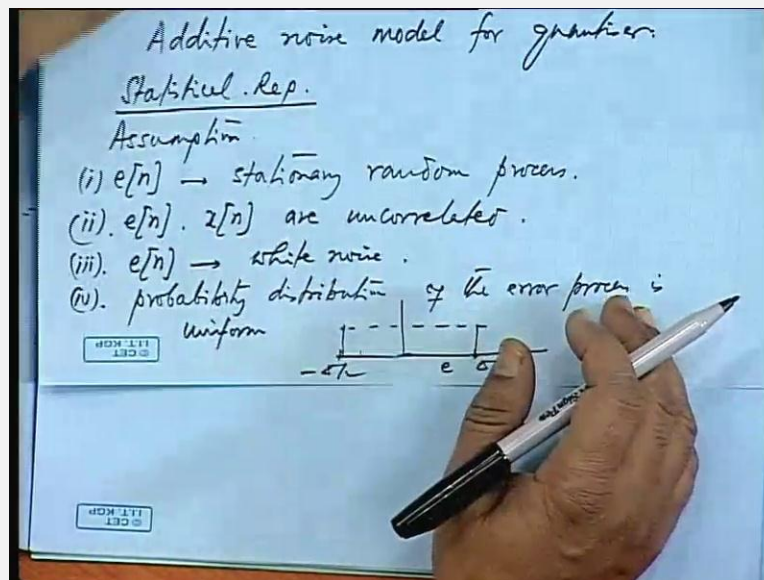 Additive noise model for quantiser.
Statistical. Rep.
Assumption
(i) e[n] → stationary random process.
(ii). e[n]. x[n] are uncorrelated.
(iii). e[n] → white noise.
(iv). probability distribution of the error process is
uniform
-Δ/2 e Δ
© CET
I.I.T. KGP
© CET
I.I.T. KGP